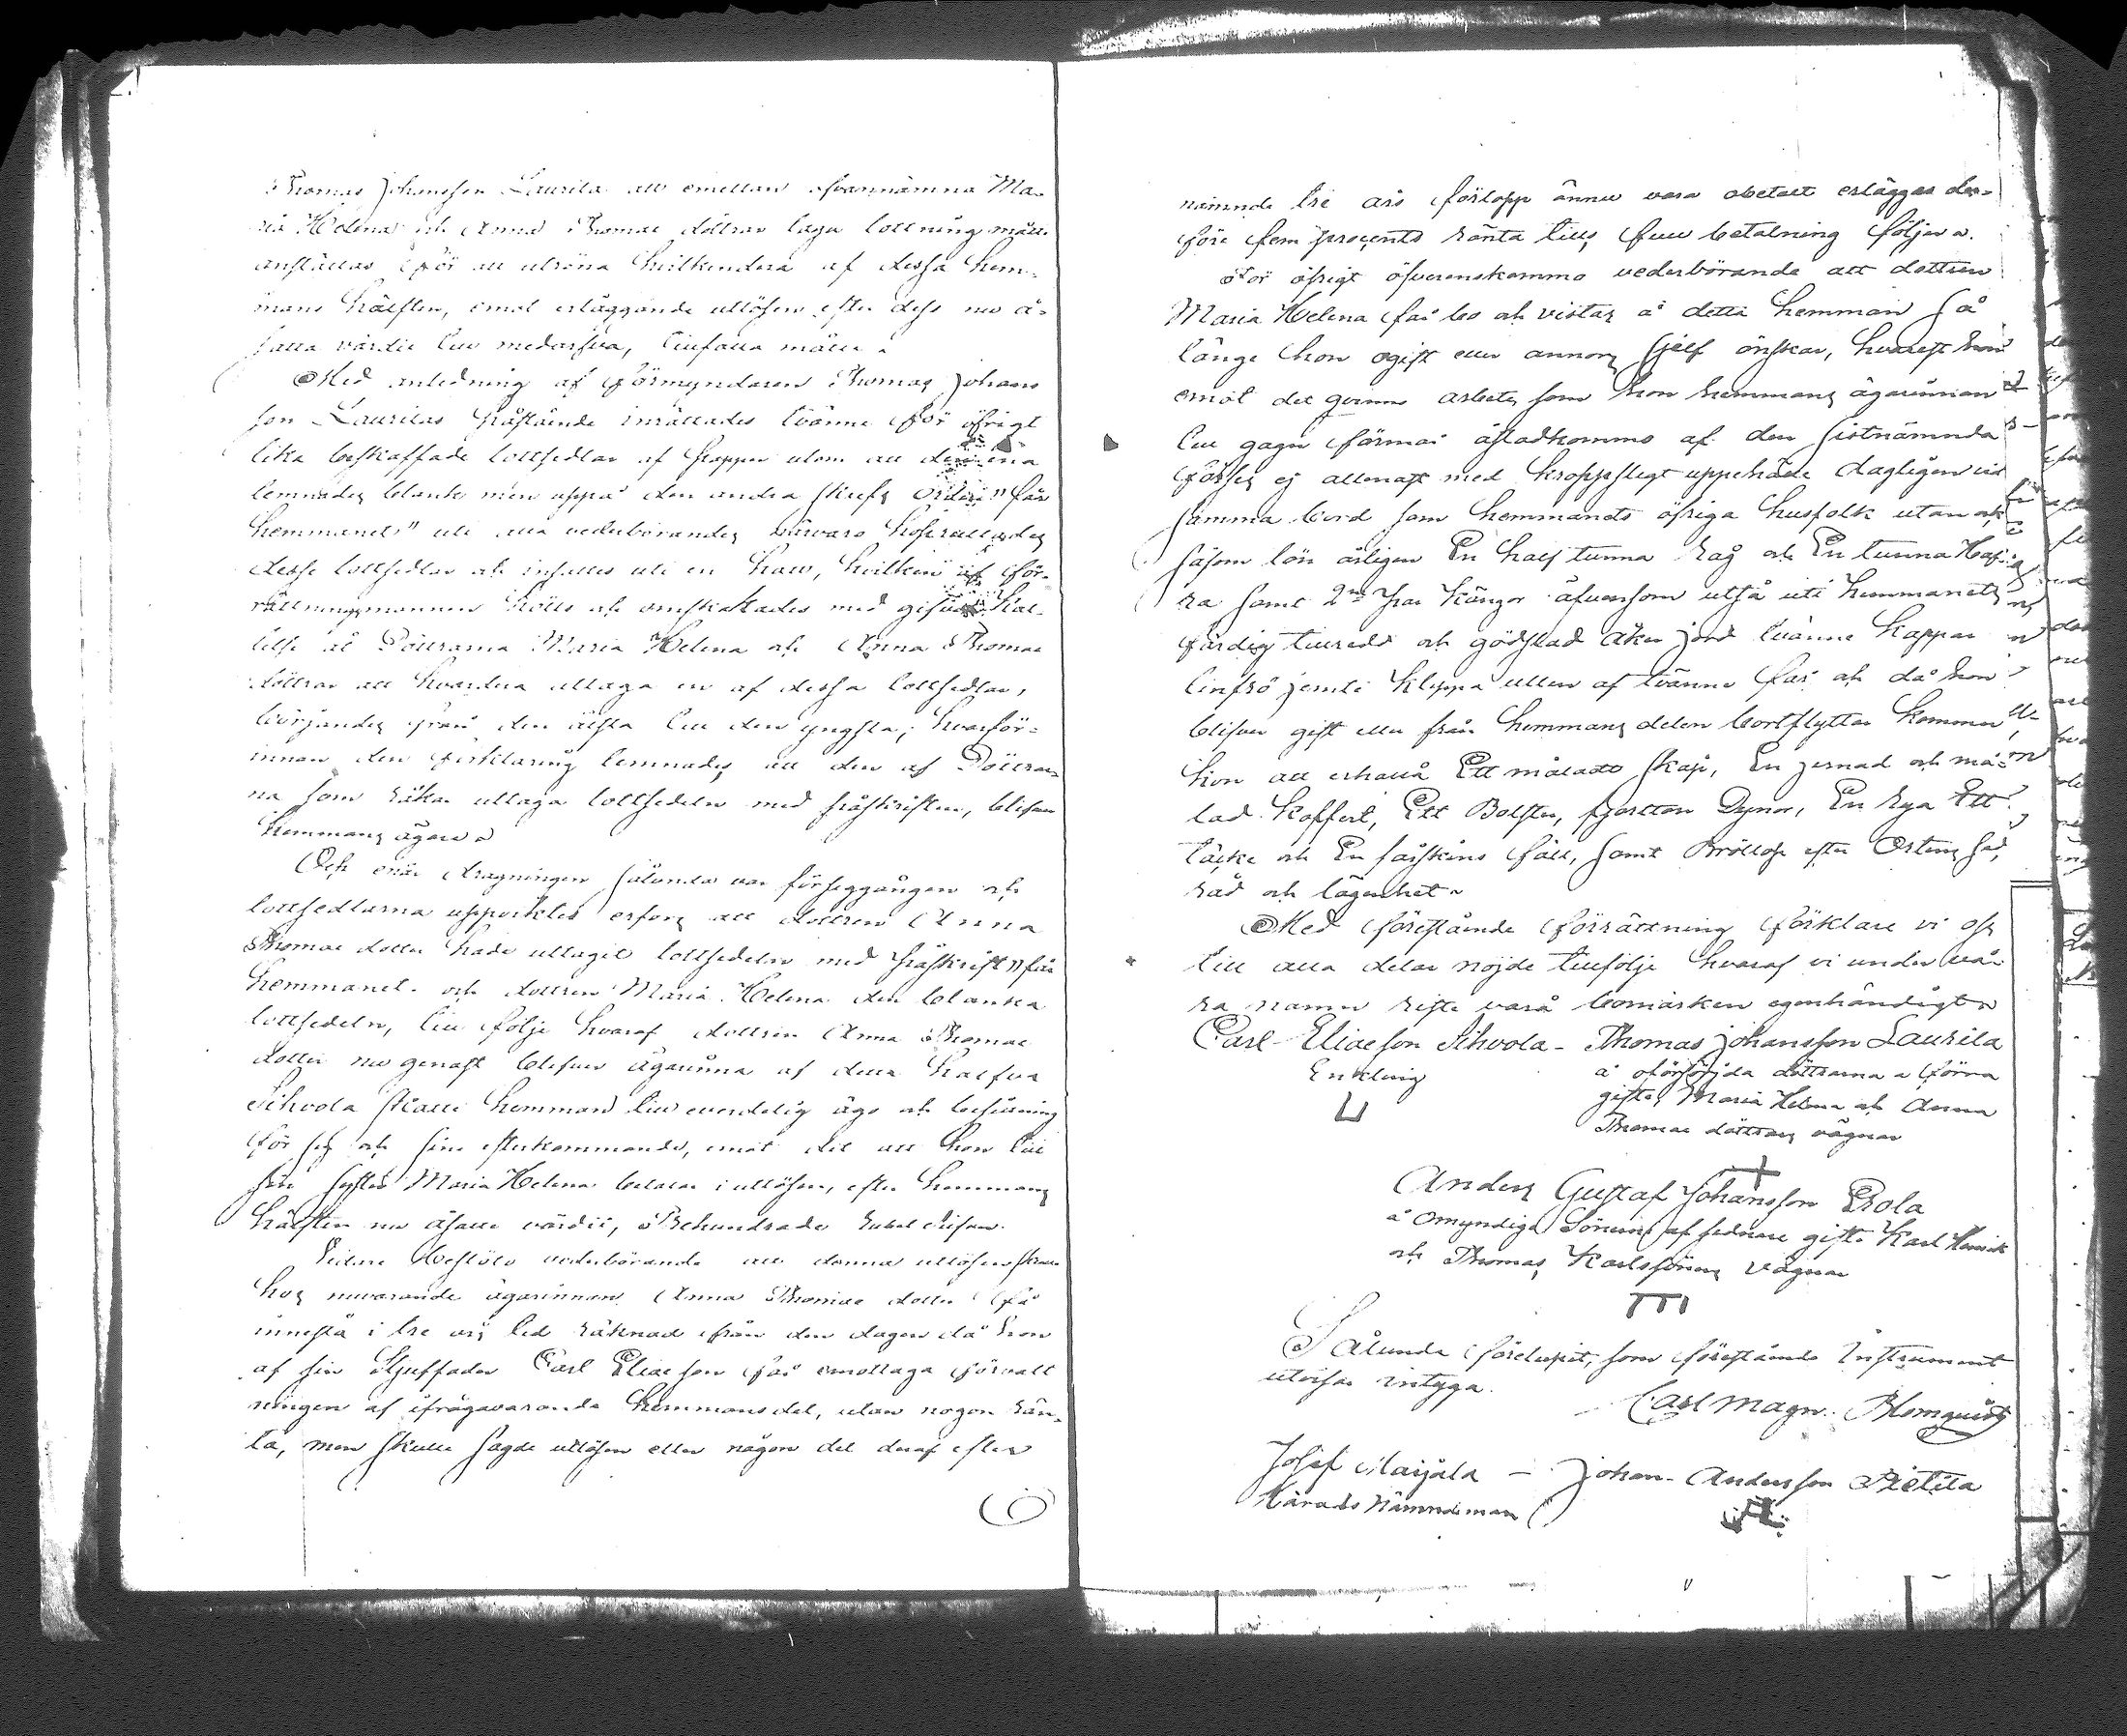 Thomas Johansson Laurila att emellan ofvannämna Ma-
ria Helena och Anna Thomae döttrar laga lottning måtte
anställas för att utröna hvilkendera af dessa hem-
mans hälften, emot erläggande utlösen efter dess nu å-
satta värdie till medarfva, tillfalla måtte.
Med anledning af Förmyndaren Thomas Johans
son Laurilas påstående inrättades tvänne för öfrigt
lika beskaffade lottsedlar af papper utom att den ena
lemnades blank men uppå den andra skrefs orden "får
hemmanet" uti alla vederbörandes närvaro hoprullades
desse lottsedlar och infattes uti en hatt, hvilken af för-
rättningsmannen hölls och omskakades med gifven kal-
lelse åt Döttrarna Maria Helena och Anna Thomae
döttrar att hvardera uttaga en af dessa lottsedlar,
börjandes från den älsta till den yngsta; hvarför-
innan den förklaring lemnades att den af Döttrar-
na som råkar uttaga lottsedeln med påskriften, blifver
hemmans ägare.
Och enär dragningen sålunda var försiggången och
lottsedlarna uppvikles erfors att dottren Anna
Thomae dotter hade uttagit lottsedeln med påskrift "får
hemmanet" och dottren Maria Helena den blanka
lottsedeln, till följe hvaraf dottren Anna Thomae
dotter nu genast blifver ägarinna af detta halfva
Sihvola skatte hemman till everdelig ägo och besittning
för sig och sine efterkommande, emot det att hon till
sin syster Maria Helena betalar i utlösen, efter hemmans
hälften nu åsatte värdie, Trehundrade rubel silfver.
Vidare beslöto vederbörande att denna utlösen skall
hos nuvarande ägarinnan Anna Thomae dotter få
innestå i tre års tid räknad från den dagen då hon
af sin Stjuffader Carl Eliaeson får emottaga förvalt
ningen af ifrågavarande hemmansdel, utan någon rän-
ta, men skulle sagde utlösen eller någon del deraf efter
nämnde tre års förlopp ännu vara obetalt erlägges der-
före fem procents ränta tills full betalning följer.
För öfrigt öfverenskommo vederbörande att dottren
Maria Helena får bo och vistas å detta hemman så
länge hon ogift eller annors sjelf önskar, hvarest hon
emot det qvinno arbete som hon hemmans ägarinnan
till gagn förmår åstadkomma af den sistnämnda
förses ej allenast med kroppsligt uppehälle dageligen vid
samma bord som hemmanets öfriga husfolk utan ock
såsom lön årligen En half tunna Råg och En tunna Haf-
ra samt 2ne par kängor äfvensom utså uti hemmanets
färdig tillredd och gödslad åker jord tvänne kappar
linfrö jemte klippa ullen af tvänne får och då hon
blifver gift eller från hemmans delen bortflyttar kommer
hon att erhålla Ett måladt skåp, En jernad och må-
lad Koffert, Ett Bolster, fjortton Dynor, En Rya Ett
täcke och En fårskins fäll, samt Bröllop efter Ortens sed,
råd och lägenhet.
Med förestående förrättning förklare vi oss
till alla delar nöjde tillfölje hvaraf vi under vå-
ra namn rista vårå bomärken egenhändigt.
Carl Eliaeson Sihvola - Thomas Johansson Laurila
Enkling
å oförsörjda döttrarna förra
giftes Maria Helena och Anna
Thomae döttrars vägnar
Anders Gustaf Johansson Erola
å Omyndiga Sönerne af sednare gifte Karl Henrik
och Thomas Karlssöners vägnar
Sålunda förelupit, som förestående Instrument
utvisar intyga.
Carl Magn. Blomqvist
Josef Maijala - Johan Andersson Pietila
Härads Nämndeman